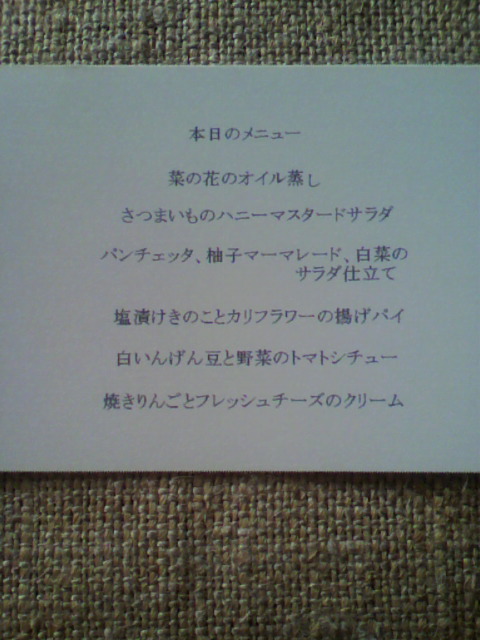 本日のメニュー
菜の花のオイル蒸し
さつまいものハニーマスタードサラダ
パンチェッタ、柚子マーマレード、白菜の
サラダ仕立て
塩漬けきのことカリフラワーの揚げパイ
白いんげん豆と野菜のトマトシチュー
焼きりんごとフレッシュチーズのクリーム